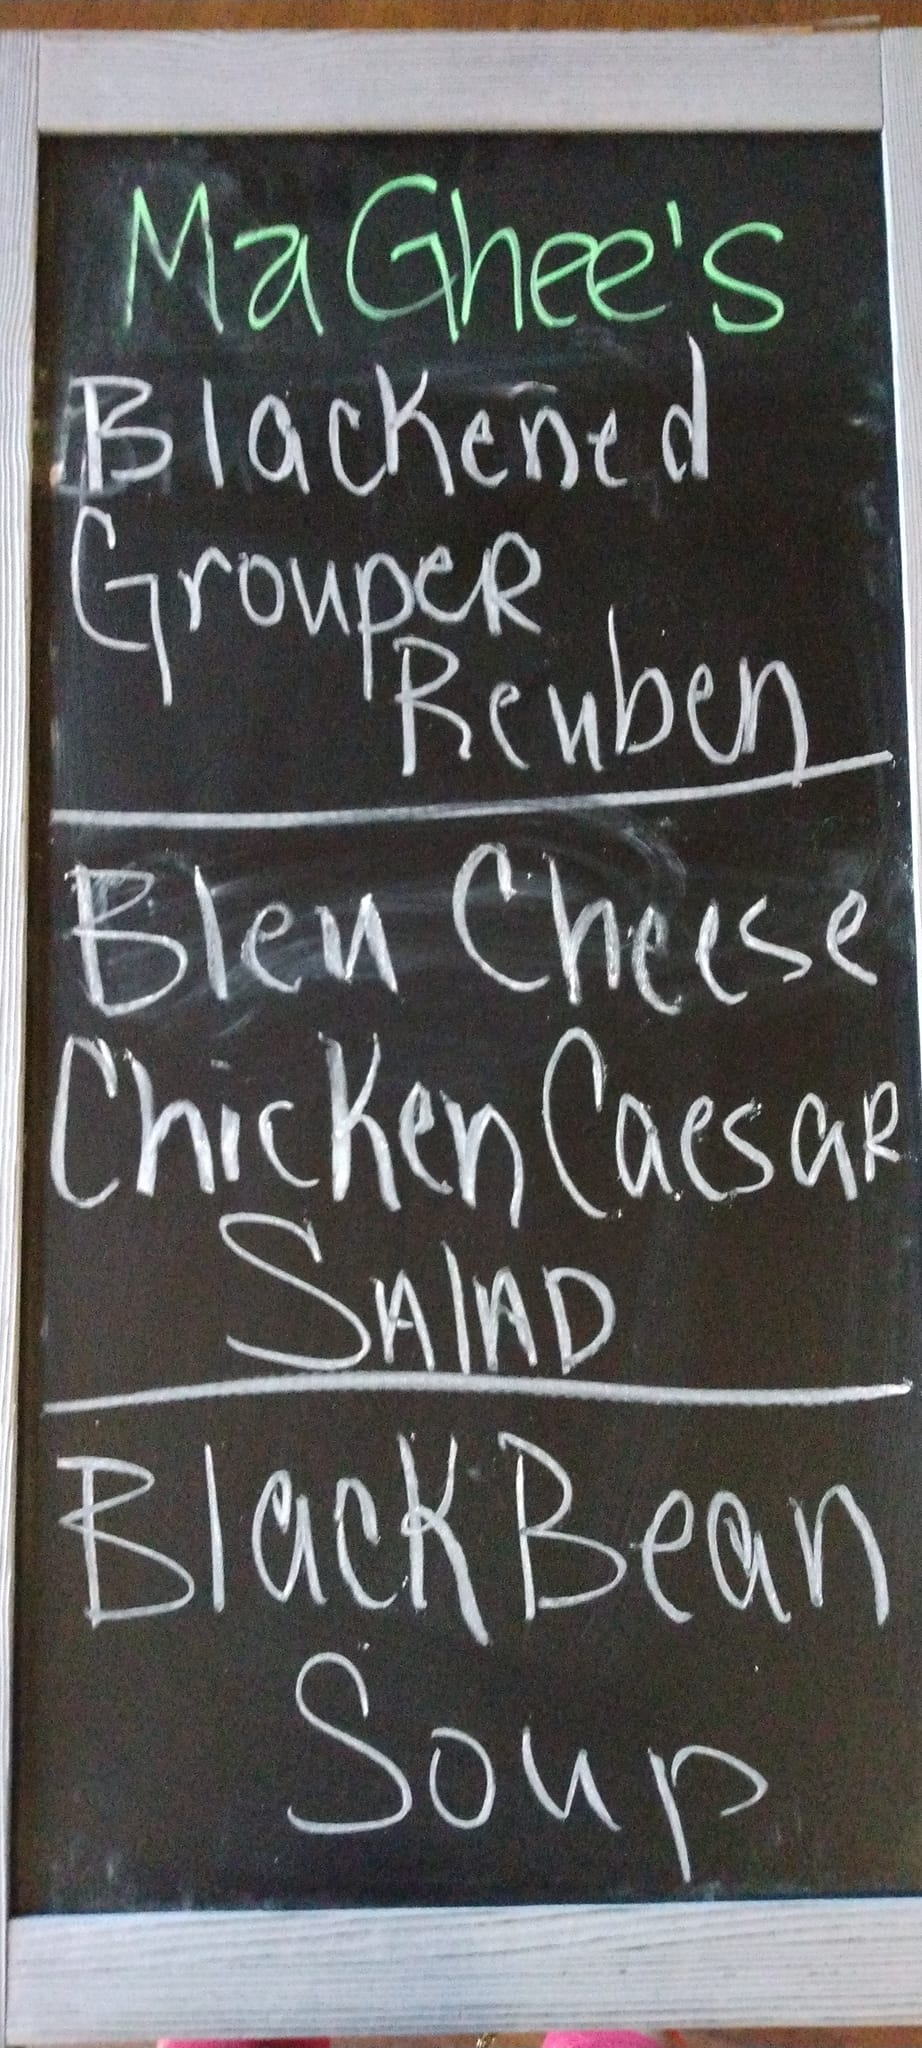 MaGhee's
Blackened
Grouper
Reuben
Bleu Cheese
Chicken Caesar
Salad
Black Bean
Soup